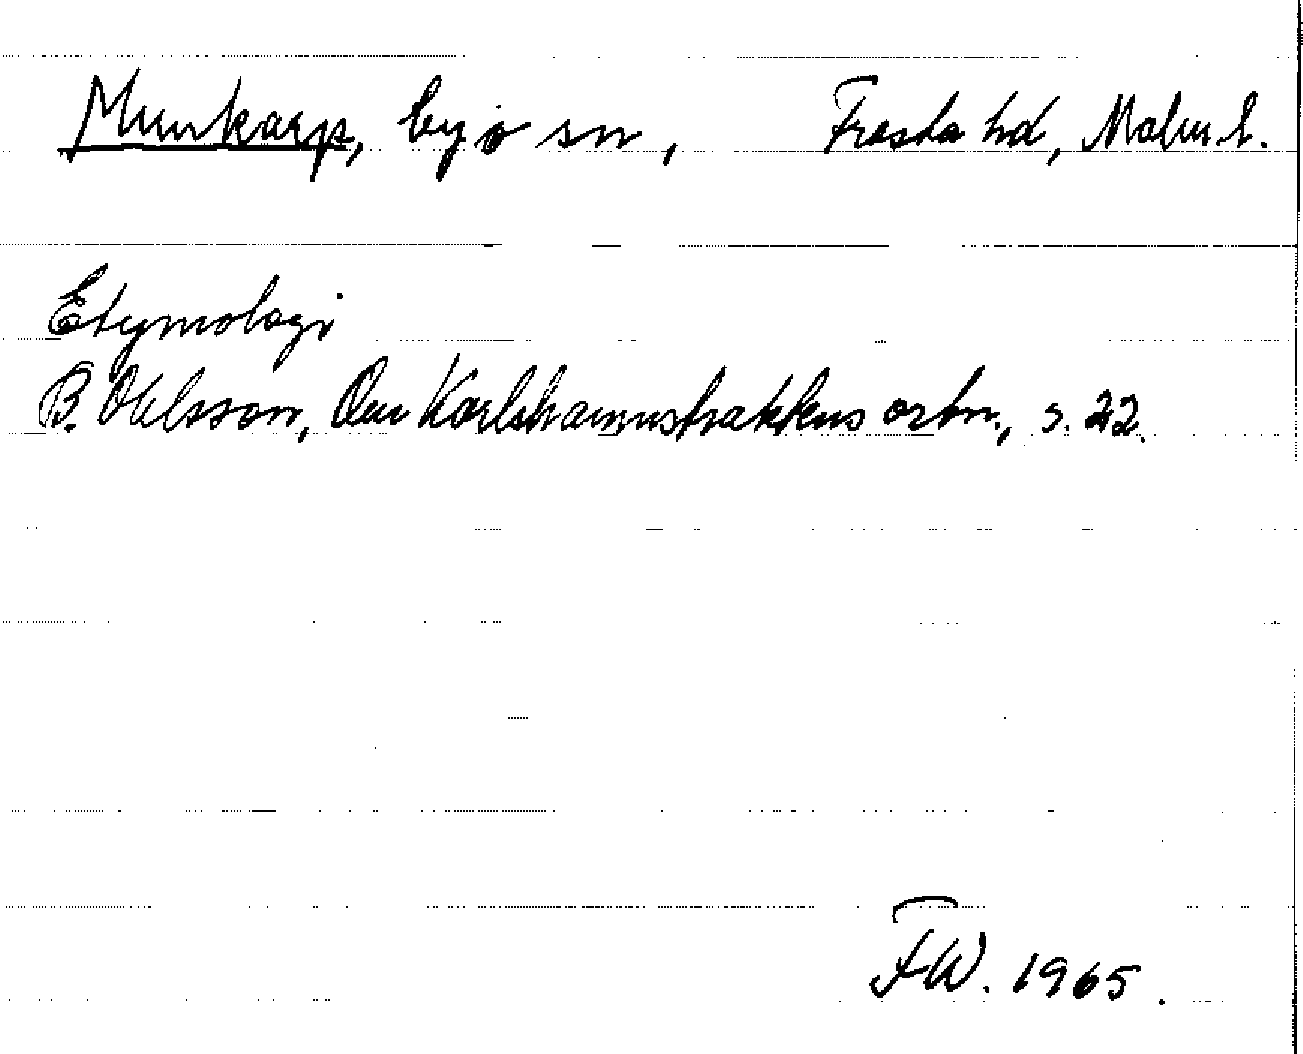 Munkarp, by o sn, Frosta hd, Malm. l.
Etymologi
B. Ohlsson, Om Karlshamnstraktens ortn., s. 22.
FW. 1965.